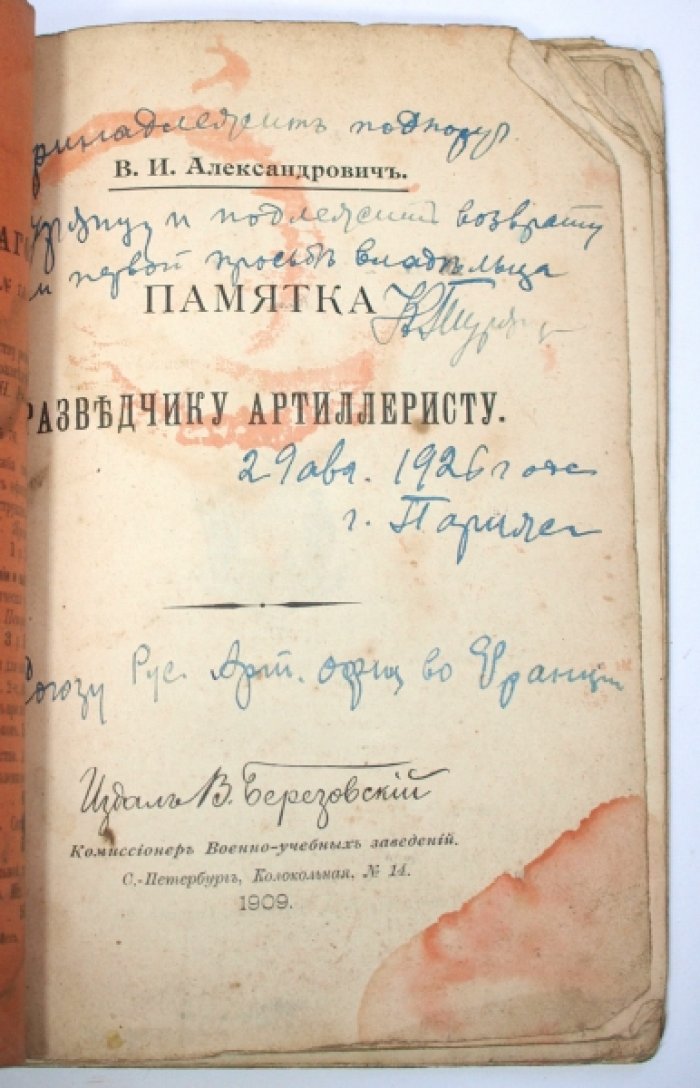 ринадлежитъ подпору.
В. И. Александровичъ.
и подлежитъ возврату
первой просьбѣ владѣльца
ПАМЯТКА
РАЗВѢДЧИКУ АРТИЛЛЕРИСТУ.
29 авг. 1926 года
г. Париж
Союзу Рус. Арт. офиц во Франціи
Издалъ В. Березовскій
Комиссіонеръ Военно-учебныхъ заведеній.
С.-Петербургъ, Колокольная, № 14.
1909.